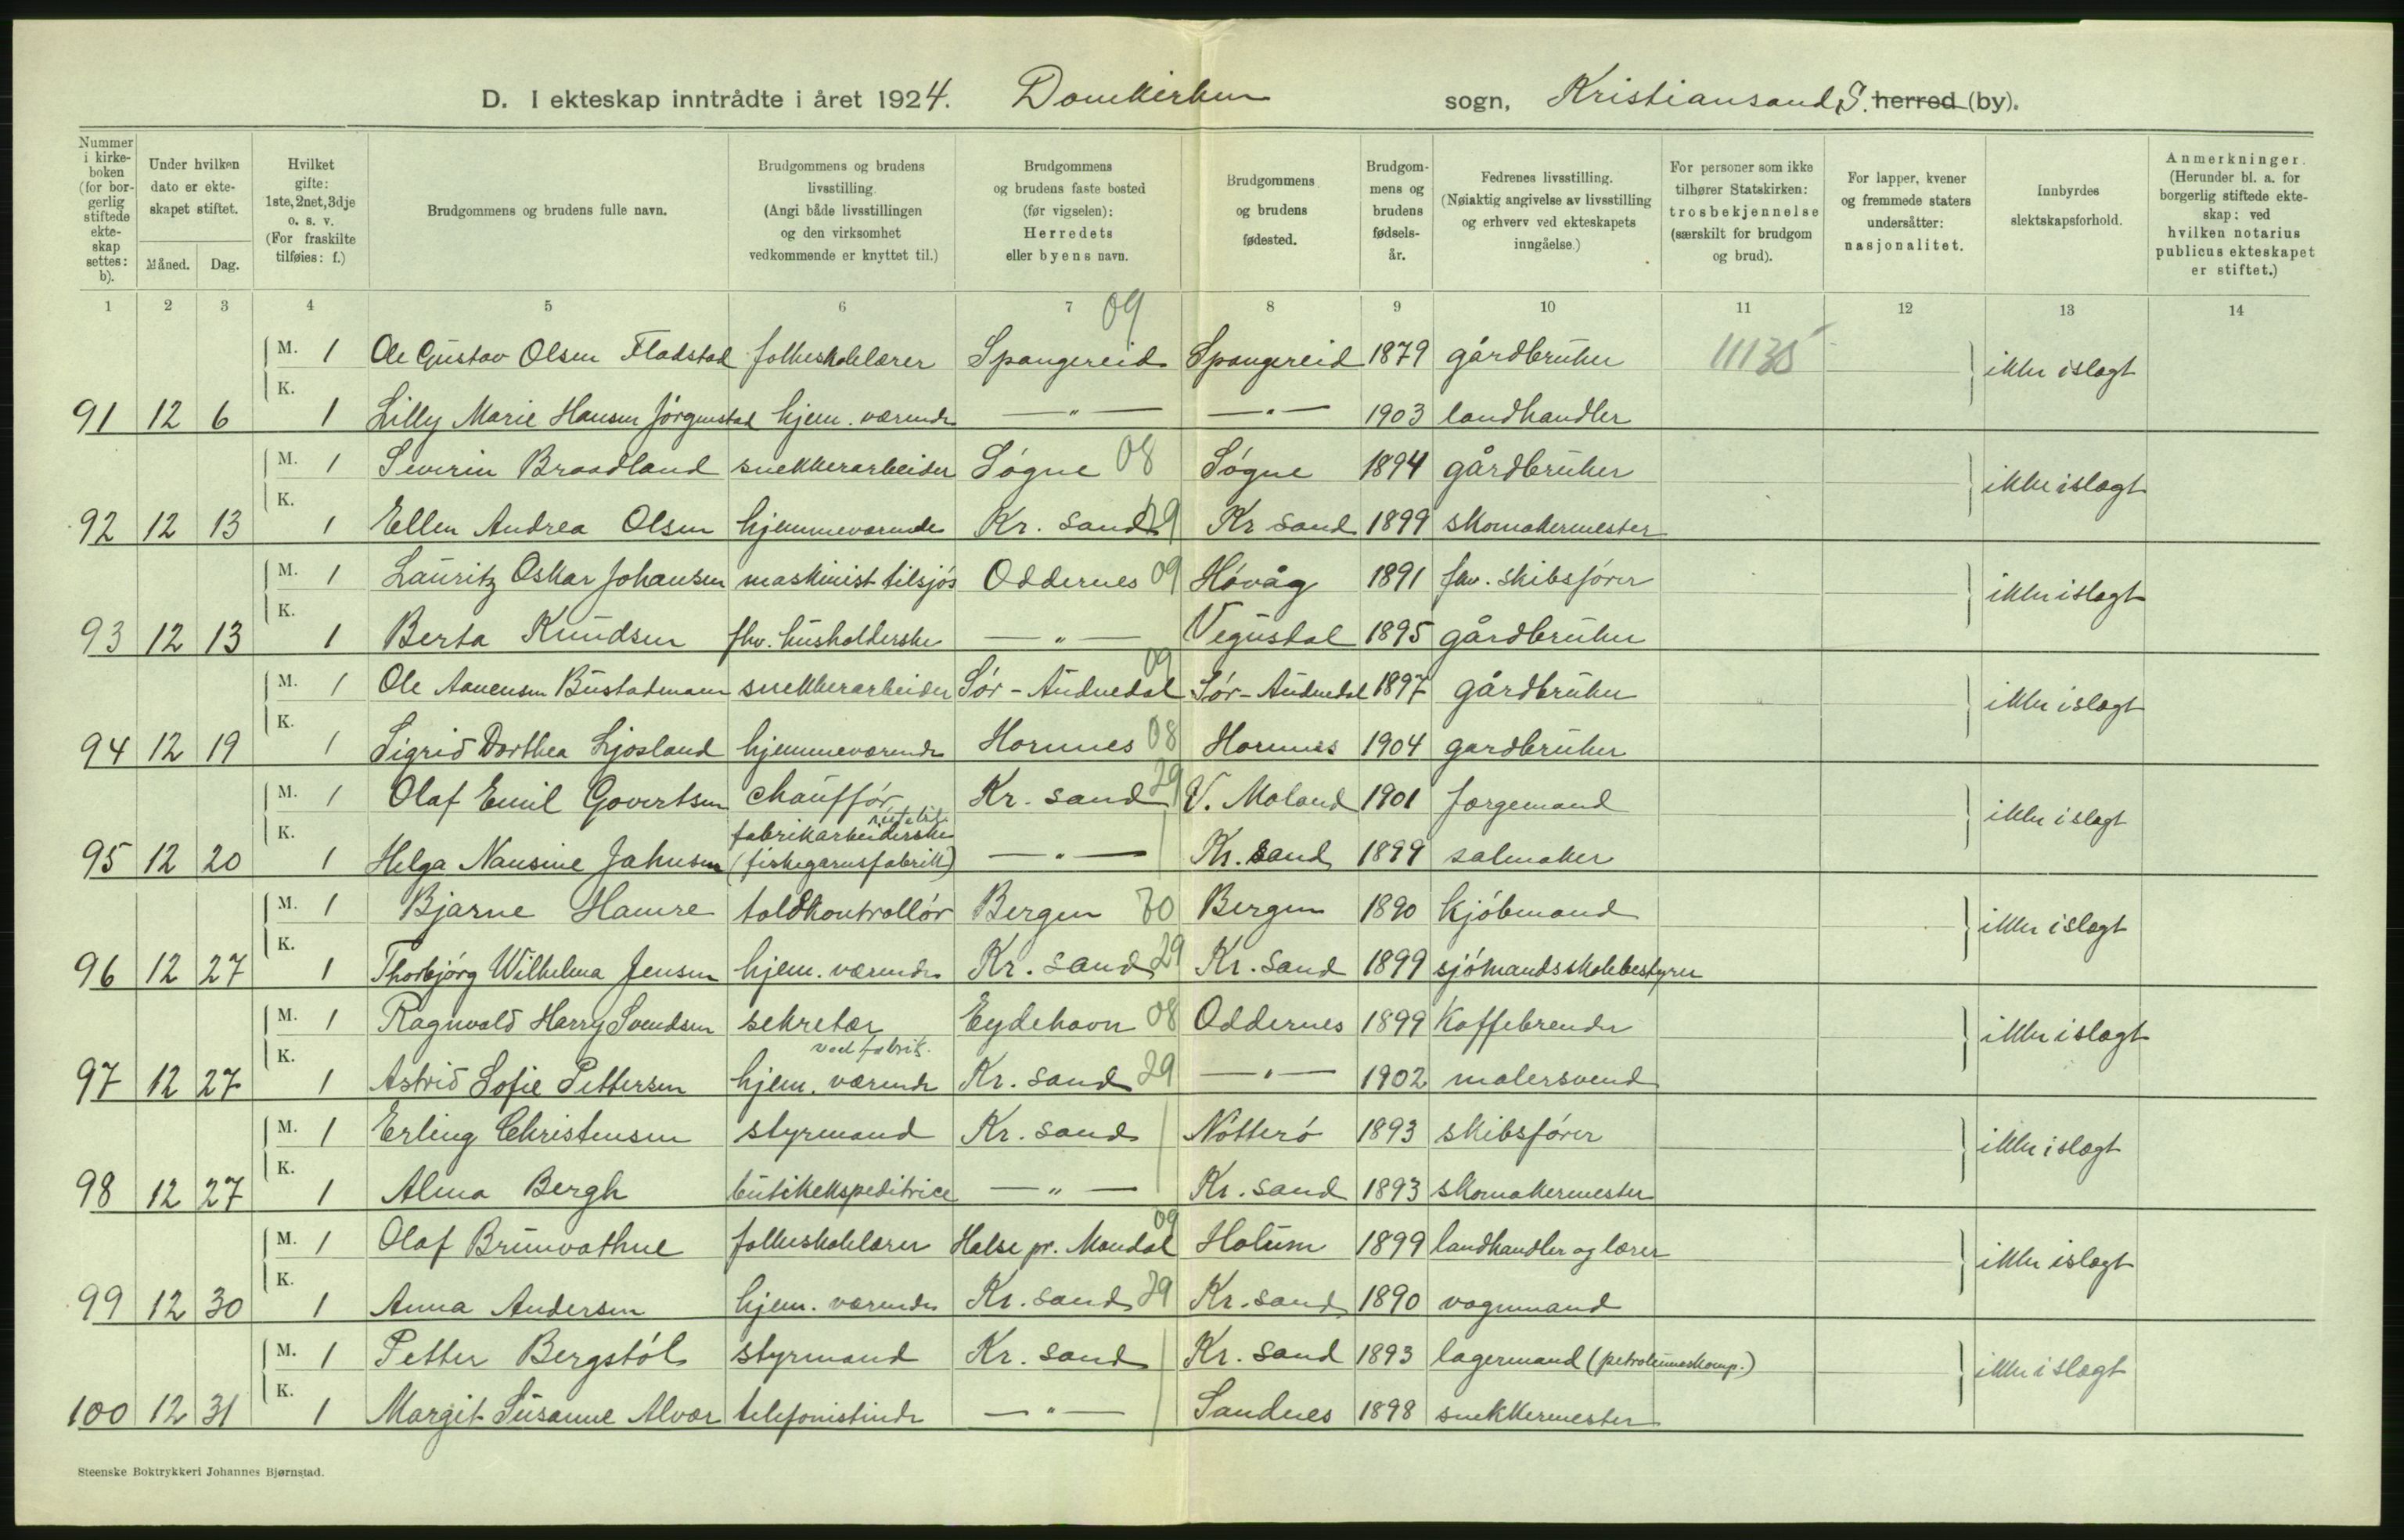 D. I ekteskap inntrådte i året 1924. Domkirken sogn, Kristiansand S. herred (by).
Nummer i kirkeboken (for borgerlig stiftede ekteskap settes: b).
Under hvilken dato er ekteskapet stiftet.
Måned. Dag.
Hvilket gifte: 1ste, 2net, 3dje o. s. v. (For fraskilte tilføies: f.)
Brudgommens og brudens fulle navn.
Brudgommens og brudens livsstilling (Angi både livsstillingen og den virksomhet vedkommende er knyttet til.)
Brudgommens og brudens faste bosted (før vigselen): Herredets eller byens navn.
Brudgommens og brudens fødested.
Brudgommens og brudens fødselsår.
Fedrenes livsstilling. (Nøiaktig angivelse av livsstilling og erhverv ved ekteskapets inngåelse.)
For personer som ikke tilhører Statskirken: trosbekjennelse (særskilt for brudgom og brud).
For lapper, kvener og fremmede staters undersåtter: nasjonalitet.
Innbyrdes slektskapsforhold.
Anmerkninger. (Herunder bl. a. for borgerlig stiftede ekteskap: ved hvilken notarius publicus ekteskapet er stiftet.)
1 2 3 4 5 6 7 8 9 10 11 12 13 14
09
M. 1 Ole Gustav Olsen Fladstad folkeskolelærer Spangereid Spangereid 1879 gårdbruker 11135 ikke i slægt
91 12 6 K. 1 Lilly Marie Hansen Jörgenstad hjem. værende — " — — " — 1903 landhandler
M. 1 Severin Braadland snekkerarbeider Sögne 08 Sögne 1894 gårdbruker ikke i slægt
92 12 13 K. 1 Ellen Andrea Olsen hjemmeværende Kr. sand 29 Kr sand 1899 skomakermester
M. 1 Lauritz Oskar Johansen maskinist tilsjøs Oddernes 09 Hövåg 1891 fhv. skibsförer ikke i slægt
93 12 13 K. 1 Berta Knudsen fhv. husholderske — " — Vegusdal 1895 gårdbruker
09
M. 1 Ole Aanensen Bustadmann snekkerarbeider Sör-Audnedal Sör-Audnedal 1897 gårdbruker ikke i slægt
94 12 19 K. 1 Sigrid Dorthea Ljosland hjemmeværende Hornnes 08 Hornnes 1904 gardbruker
M. 1 Olaf Emil Govertsen chaufför Kr. sand 29 V. Moland 1901 færgemand ikke i slægt
rutebil
fabrikarbeiderske
95 12 20 K. 1 Helga Nansine Jahnsen (fiskegarnsfabrik) — " — Kr. sand 1899 salmaker
M. 1 Bjarne Hamre toldkontrollör Bergen 30 Bergen 1890 kjöbmand ikke i slægt
96 12 27 K. 1 Thorbjörg Wilhelma Jensen hjem. værende Kr. sand 29 Kr. sand 1899 sjómandsskolebestyrer
M. 1 Ragnvald Harry Svendsen sekretær Eydehavn 08 Oddernes 1899 Kaffebrender ikke i slægt
ved fabrik.
97 12 27 K. 1 Astrid Sofie Pettersen hjem. værende Kr. sand 29 — " — 1902 malersvend
M. 1 Erling Christensen styrmand Kr. sand Nötterö 1893 skibsförer ikke i slægt
98 12 27 K. 1 Alma Bergh butikekspeditrice — " — Kr. sand 1893 skomakermester
09
M. 1 Olaf Brunvathne folkeskolelærer Halse pr. Mandal Holum 1899 landhandler og lærer ikke i slægt
99 12 30 K. 1 Anna Andersen hjem. værende Kr. sand 29 Kr. sand 1890 vognmand
M. 1 Petter Bergstöl styrmand Kr. sand Kr. sand 1893 lagermand (petroleumskomp.) ikke i slægt
100 12 31 K. 1 Margit Susanne Alvær telefonistinde — " — Sandnes 1898 snekkermester
Steenske Boktrykkeri Johannes Bjørnstad.